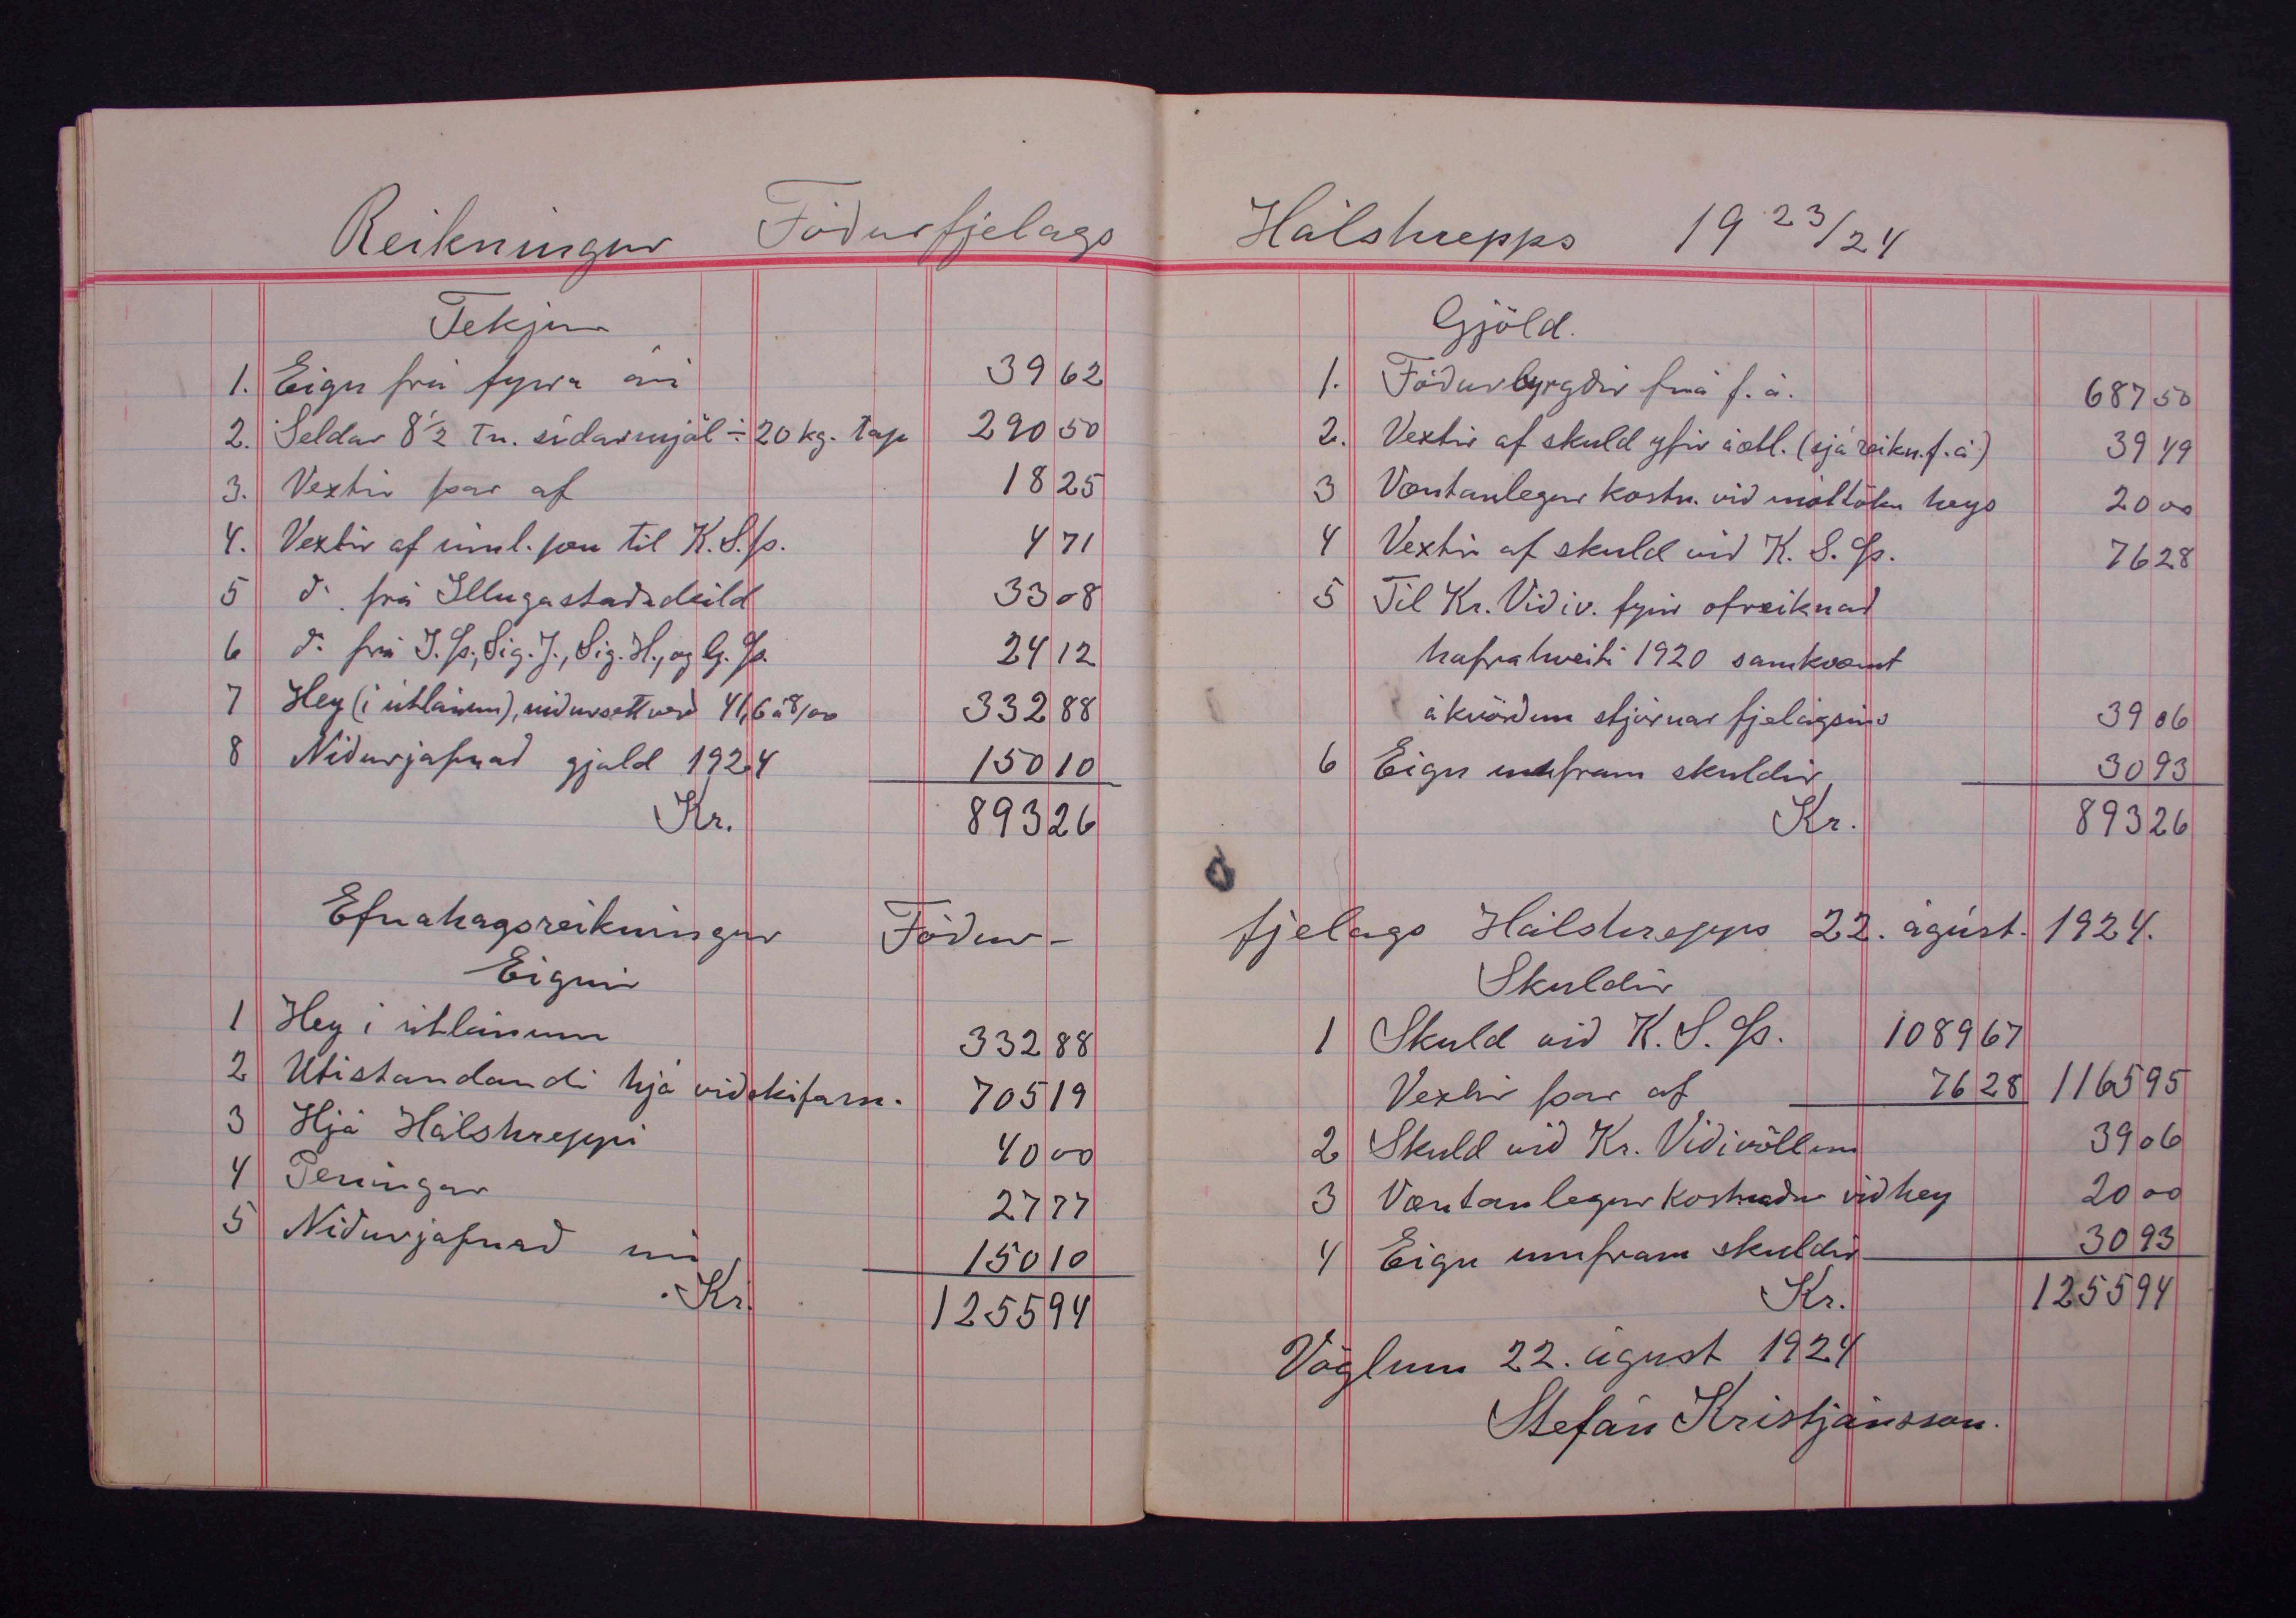 Reikningur Fóðurfjelags
Tekjur
1. Eign frá fyrra ári 39 62
2. Seldar 8 1/2 Tn. sídarmjöl ÷ 20 kg. tap 290 50
3. Vextir þar af 18 25
4. Vextir af innl. þau til K. S. Þ. 4 71
5 do. frá Illugastaðadeild 33 08
6 do. frá J. Þ., Sig. J., Sig. H., og G. Þ. 24 12
7 Hey (í útlánum), niðursett verð 41,6 á 8/00 332 88
8 Niðurjafnað gjald 1924 150 10
Kr. 893 26
Efnahagsreikningur Fóður-
Eignir
1 Hey í útlánum 332 88
2 Útistandandi hjá viðskifam. 705 19
3 Hjá Hálshreppi 40 00
4 Peningar 27 77
5 Niðurjafnað nú 150 10
Kr. 1255 94
Hálshrepps 19 23/24
Gjöld.
1. Fóðurbyrgðir frá f. á. 687 50
2. Vextir af skuld yfir áætl. (sjá reikn. f. á) 39 49
3 Væntanlegur kostn. við móttöku heys 20 00
4 Vextir af skuld við K. S. Þ. 76 28
5 Til Kr. Víðiv. fyrir ofreiknað
hafrahveiti 1920 samkvæmt
ákvörðun stjórnar fjelagsins 39 06
6 Eign umfram skuldir 30 93
Kr. 893 26
fjelags Hálshrepps 22. ágúst. 1924.
Skuldir
1 Skuld við K. S. Þ. 1089 67
Vextir þar af 76 28 1165 95
2 Skuld við Kr. Víðivöllum 39 06
3 Væntanlegur kostnaður við hey 20 00
4 Eign umfram skuldir 30 93
Kr. 1255 94
Vöglum 22. ágúst 1924
Stefán Kristjánsson.